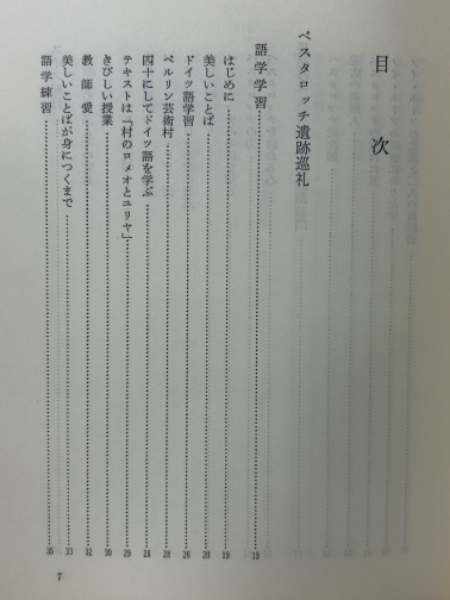 目次
ペスタロッチ遺跡巡礼
語学学習 19
はじめに 19
美しいことば 20
ドイツ語学習 26
ベルリン芸術村 28
四十にしてドイツ語を学ぶ 28
テキストは「村のロメオとユリヤ」 29
きびしい授業 30
教師の愛 32
美しいことばが身につくまで 33
語学練習 35
7